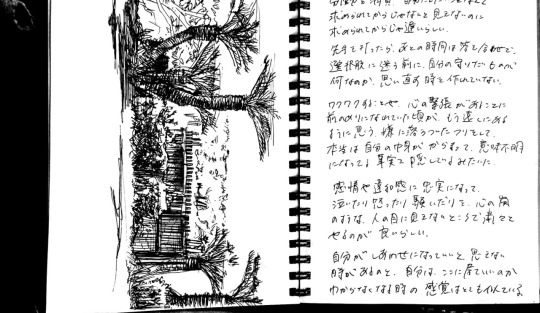 求められてからじゃないと見えないのに
求められてからじゃ遅いらしい。
先手で打ったら、あとの時間は答え合せで、
選択肢に迷う前に、自分の守りたいものが
何なのか、思い直す時を作れていない。
ワクワクすることや、心の緊張があることに
前のめりになれていた頃が、もう遠くにある
ように思う。様に落ちついたフリをして、
本当は自分の中身がからまって、意味不明
になってる事実を隠しているみたいに。
感情や違和感に忠実になって、
泣いたり怒ったり騒いだりを、心の隅
のような、人の目に見えないところで着々と
やるのが良いらしい。
自分がしあわせになっていいと思えない
時があるのと、自分は、ここに居ていいのか
わからなくなる時の感覚はとても似ている。